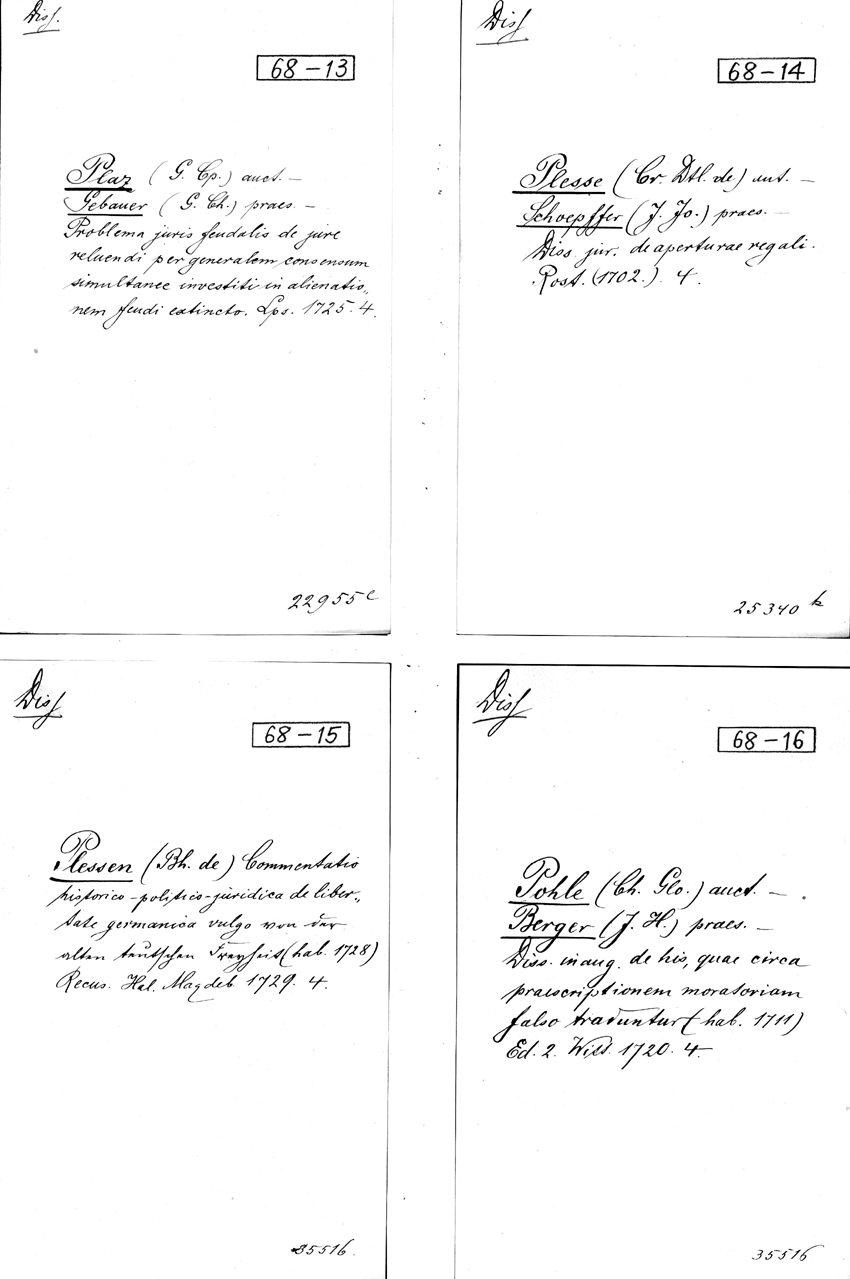 Diss.
68-13
Plaz (G. Cp.) auct. —
Gebauer (G. Ch.) praes. —
Problema juris feudalis de jure
reluendi per generalem consensum
simultanee investiti in alienatio„
nem feudi extincto. Lps. 1725. 4.
22955 c
Diss
68-14
Plesse (Cr. Dtl. de) aut. —
Schoepffer (J. Jo.) praes. —
Diss. jur. de aperturae regali.
Rost. (1702.) 4.
25340 k
Diss
68-15
Plessen (Bh. de) Commentatio
historico-politico-juridica de liber„
tate germanica vulgo von der
alten teutschen Freyheit (hab. 1728)
Recus. Hal. Magdeb. 1729. 4.
35516.
Diss
68-16
Pohle (Ch. Glo.) auct. —
Berger (J. H.) praes. —
Diss. inaug. de his, quae circa
praescriptionem moratoriam
falso traduntur (hab. 1711)
Ed. 2. Witt. 1720. 4.
35516